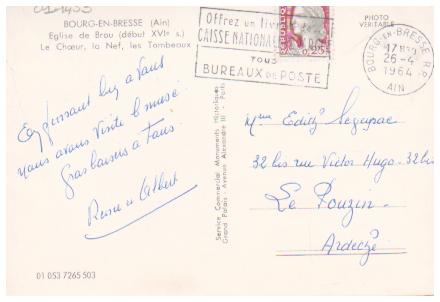 01-1433
BOURG-EN-BRESSE (Ain)
Eglise de Brou (début XVIᵉ s.)
Le Chœur, la Nef, les Tombeaux
Offrez un livret
CAISSE NATIONALE
TOUS
BUREAUX DE POSTE
0,25
PHOTO
VERITABLE
BOURG-EN-BRESSE R.P.
17H30
26-4
1964
AIN
En passant by a vous
nous avons visité le musé.
Gros baisers à tous.
Reine et Albert
Service Commercial Monuments Historiques
Grand Palais - Avenue Alexandre III - Paris
Mme Edith
32 bis rue Victor Hugo - 32 bis
Le Pouzin
Ardèche
01 053 7265 503